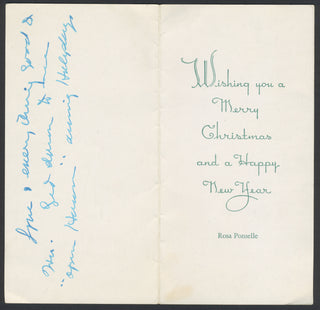 Love & everything good to
"open House" during Holydays
Wishing you a
Merry
Christmas
and a Happy
New Year
Rosa Ponselle